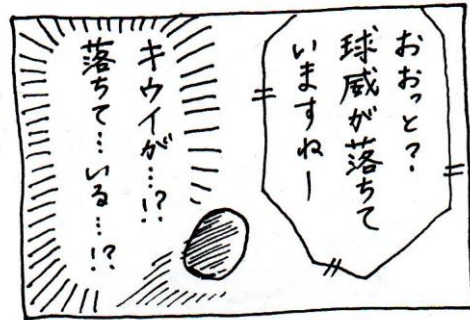 おおっと？
球威が落ちて
いますねー
キウイが…!?
落ちて…いる…!?